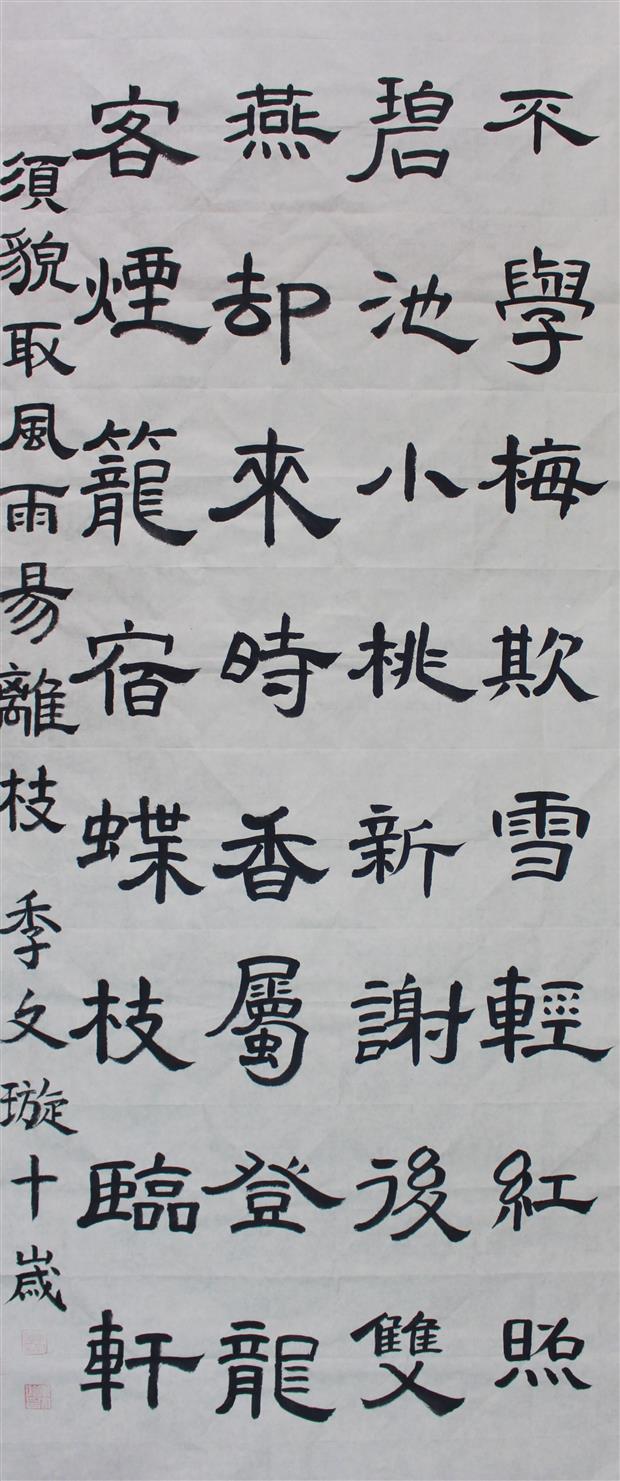 不學梅欺雪輕紅照
碧池小桃新謝後雙
燕却來時香屬登龍
客煙籠宿蝶枝臨軒
須貌取風雨易離枝 季文璇十歲